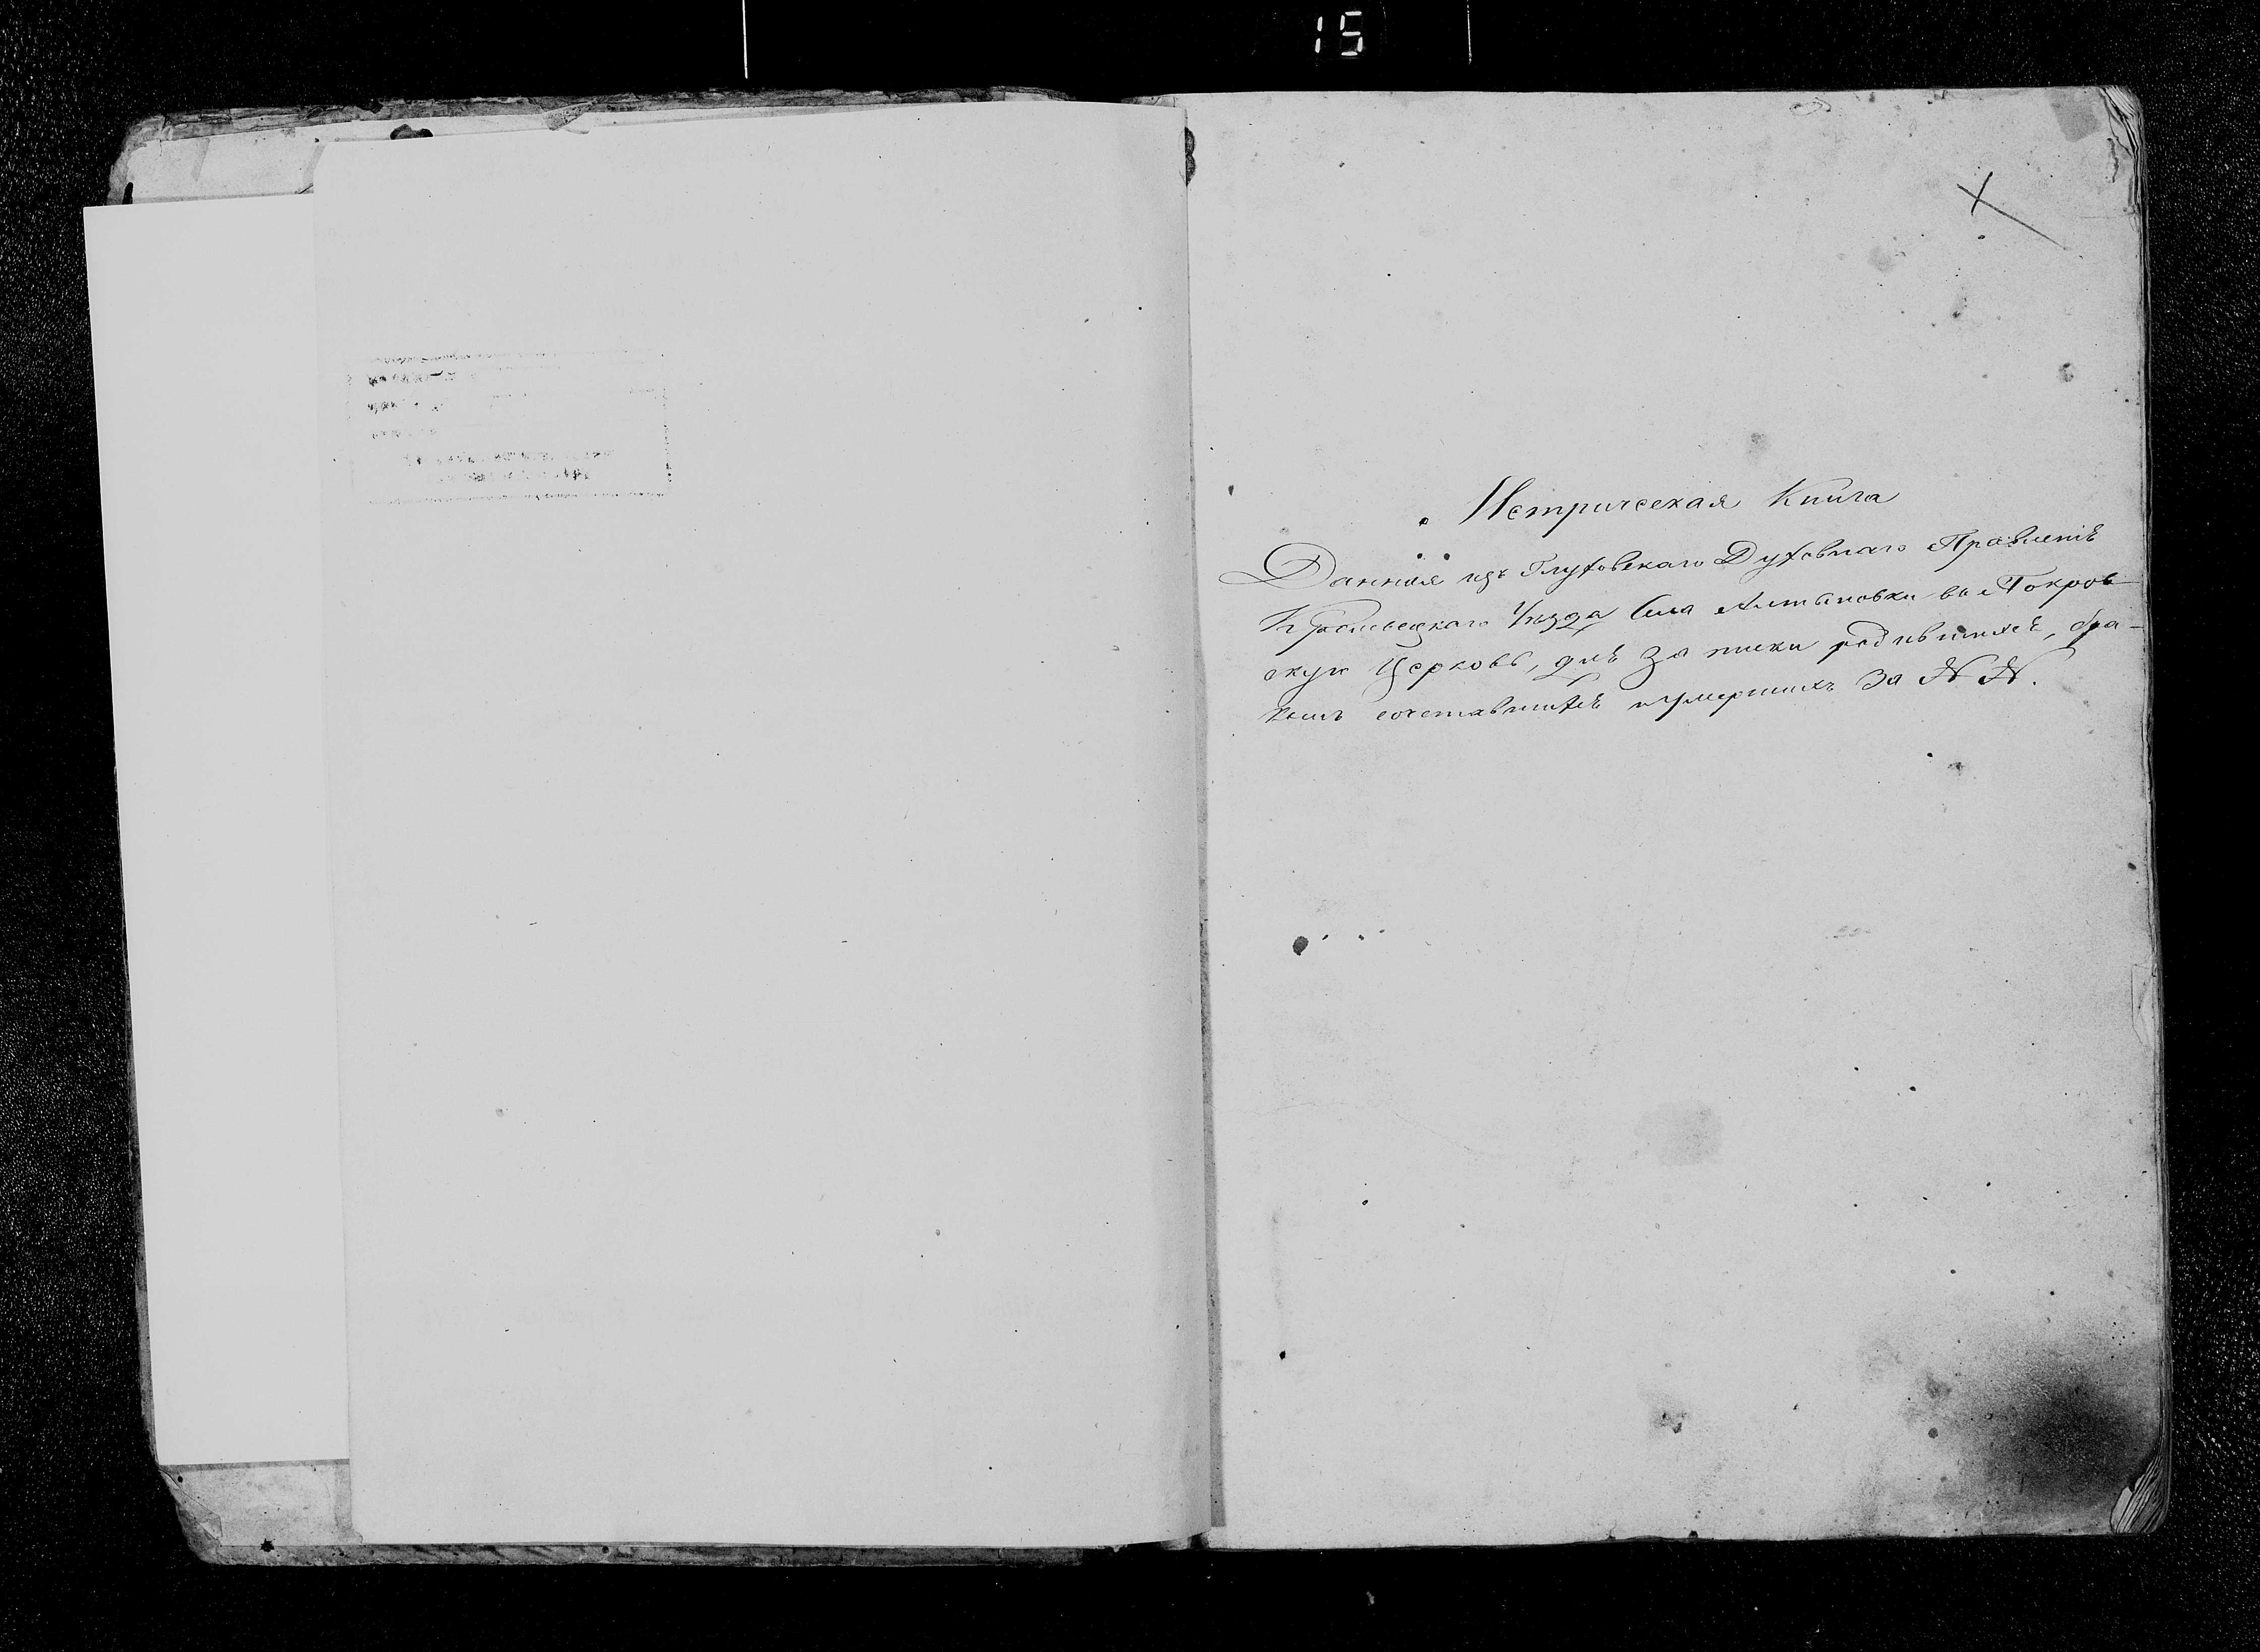 15
Метрическая Книга
Данная изъ Глуховскаго Духовнаго Правленія
Кролевецкаго Уѣзда Села Алтыновки въ Покров-
скую Церковь, для записки родившихся, бра-
комъ сочетавшихся и умершихъ за N N.